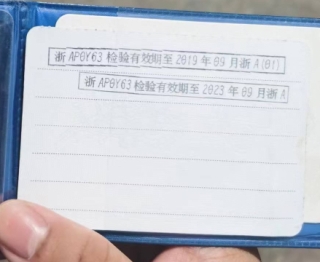 浙 AP0Y63 检验有效期至 2019 年 09 月浙 A(01)
浙 AP0Y63 检验有效期至 2023 年 09 月浙 A